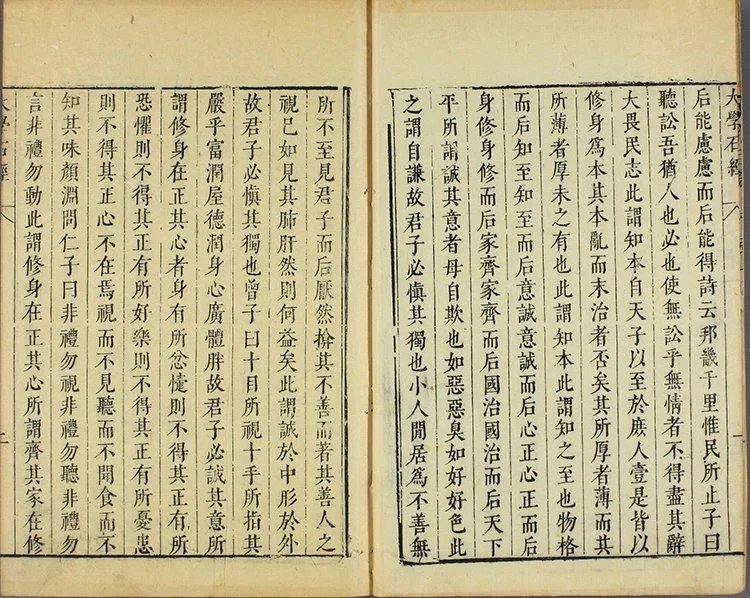 大學石經
后能慮慮而后能得詩云邦畿千里惟民所止子曰
聽訟吾猶人也必也使無訟乎無情者不得盡其辭
大畏民志此謂知本自天子以至於庶人壹是皆以
修身為本其本亂而末治者否矣其所厚者薄而其
所薄者厚未之有也此謂知本此謂知之至也物格
而后知至知至而后意誠意誠而后心正心正而后
身修身修而后家齊家齊而后國治國治而后天下
平所謂誠其意者毋自欺也如惡惡臭如好好色此
之謂自謙故君子必慎其獨也小人閒居為不善無
所不至見君子而后厭然揜其不善而著其善人之
視己如見其肺肝然則何益矣此謂誠於中形於外
故君子必慎其獨也曾子曰十目所視十手所指其
嚴乎富潤屋德潤身心廣體胖故君子必誠其意所
謂修身在正其心者身有所忿懥則不得其正有所
恐懼則不得其正有所好樂則不得其正有所憂患
則不得其正心不在焉視而不見聽而不聞食而不
知其味顏淵問仁子曰非禮勿視非禮勿聽非禮勿
言非禮勿動此謂修身在正其心所謂齊其家在修
大學石經
二